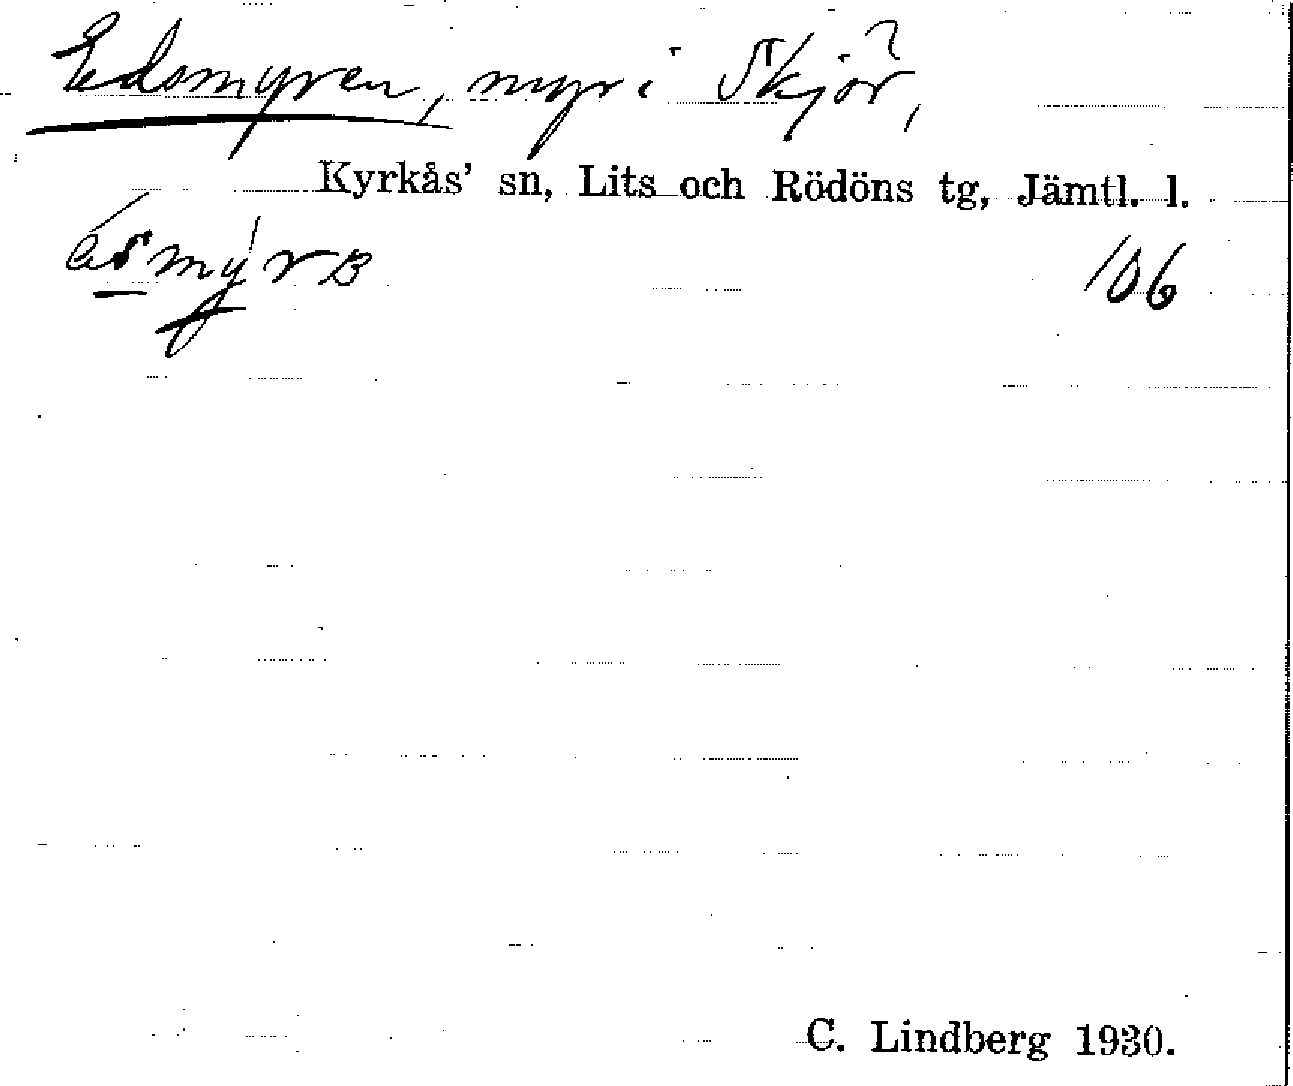 Edsmyren, myr i Skjör,
Kyrkås' sn, Lits och Rödöns tg, Jämtl. l.
106
C. Lindberg 1930.